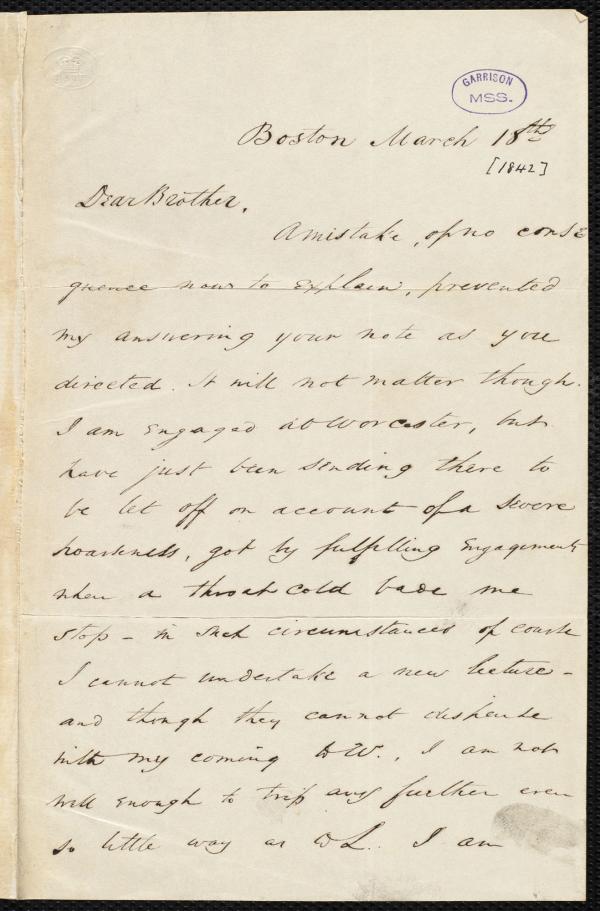 GARRISON
MSS.
Boston March 18th
[1842]
Dear Brother,
A mistake, of no conse
quence now to explain, prevented
my answering your note as you
directed. It will not matter though.
I am engaged at Worcester, but
have just been sending there to
be let off on account of a severe
hoarseness, got by fulfilling Engagements
when a throat cold bade me
stop – in such circumstances of course
I cannot undertake a new lecture –
and though they cannot dispense
with my coming to W., I am not
well enough to trip any further even
so little way as to L. I am